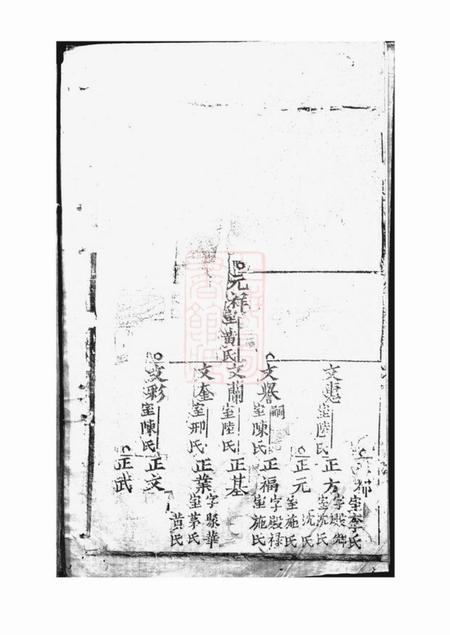 室李氏
正方
字殿
室沈氏
文
室陸氏
正元
沈氏
室施氏
文譽
嗣
室陳氏
正福
字殿祿
室施氏
元祥
室黃氏
文蘭
室陸氏
正基
文奎
室邢氏
正葉
字聚華
室茅氏
黃氏
文彩
室陳氏
正文
正武